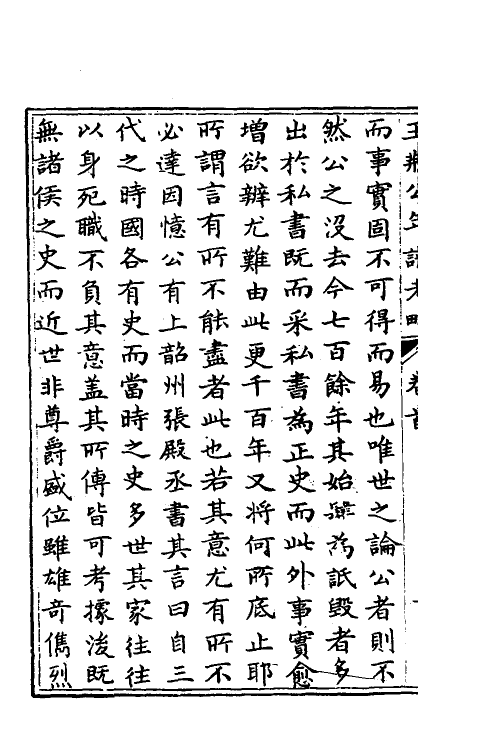 王荊公年譜考略 卷首
而事實固不可得而易也唯世之論公者則不
然公之沒去今七百餘年其始肆為詆毀者多
出於私書既而采私書為正史而此外事實愈
增欲辨尤難由此更千百年又將何所底止耶
所謂言有所不能盡者此也若其意尤有所不
必達因憶公有上韶州張殿丞書其言曰自三
代之時國各有史而當時之史多世其家往往
以身死職不負其意蓋其所傳皆可考據後既
無諸侯之史而近世非尊爵盛位雖雄奇儁烈